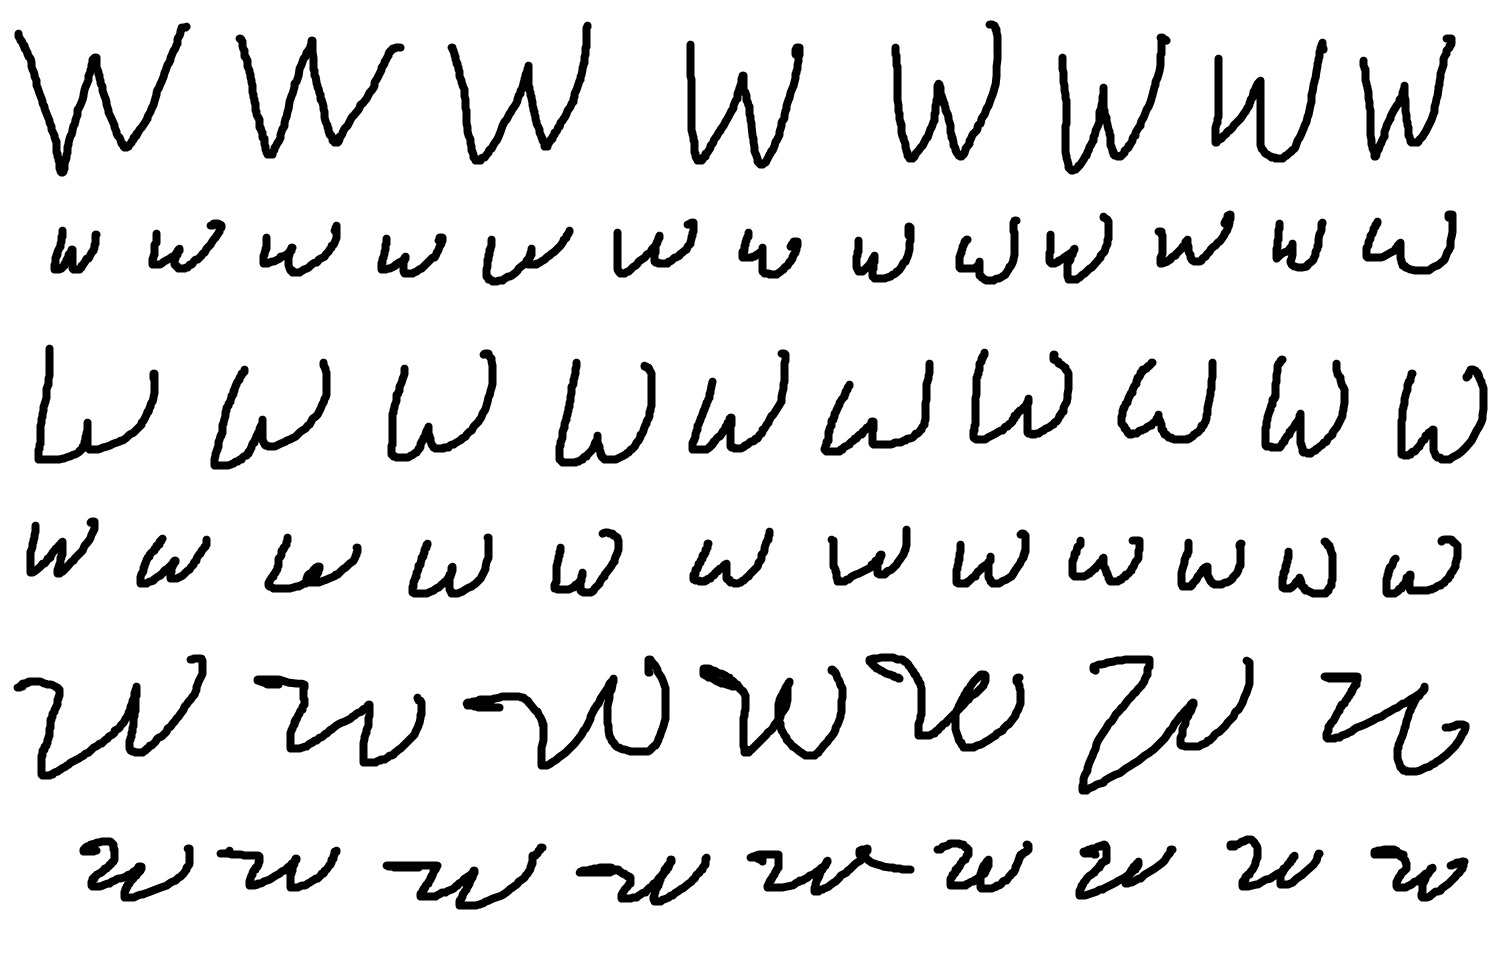 W W W W W W W W
w w w w w w w w w w w w w
W W W W W W W W W W
w w w w w w w w w w w w
W W W W W W W
w w w w w w w w w